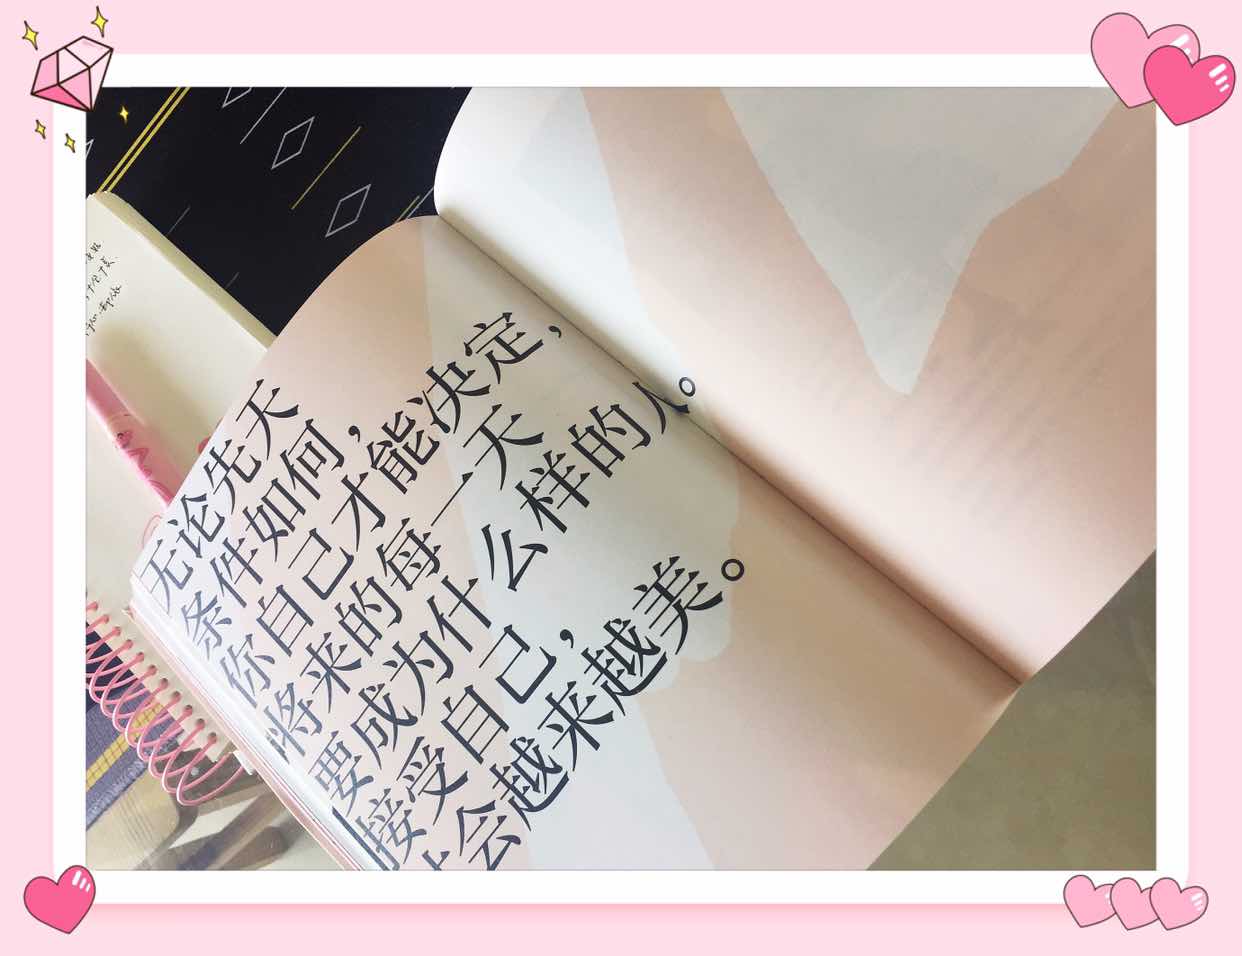 无论先天
条件如何，
你自己才能决定，
将来的每一天
要成为什么样的人。
接受自己，
会越来越美。